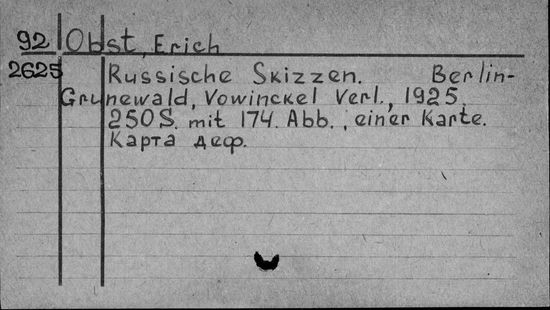 92 Obst, Erich
2625 Russische Skizzen. Berlin-
Grunewald, Vowinckel Verl., 1925.
250 S. mit 174. Abb., einer Karte.
Карта деф.